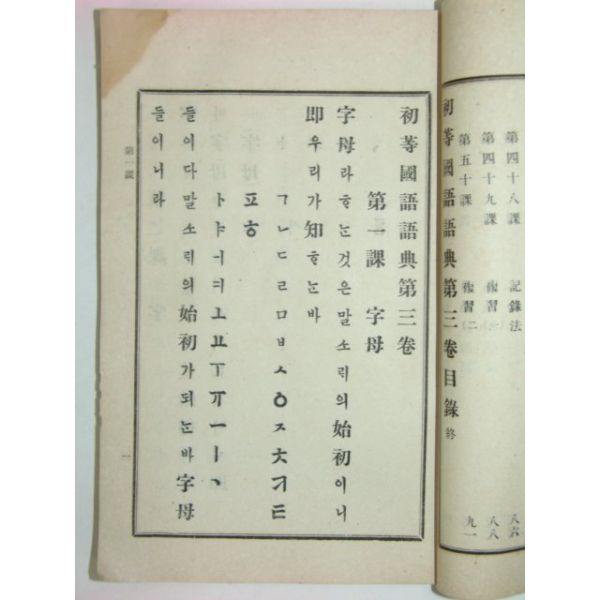 第四十八課 記錄法 八六
第四十九課 複習一 八八
第五十課 複習二 九一
初等國語語典第三卷目錄 終
初等國語語典第三卷
第一課 字母
字母라ᄒᆞᄂᆞᆫ것은말소ᄅᆡ의始初이니
即우리가知ᄒᆞᄂᆞᆫ바
ㄱㄴㄷㄹㅁㅂㅅㅇㅈㅊㅋㅌ
ㅍㅎ
ㅏㅑㅓㅕㅗㅛㅜㅠㅡㅣㆍ
들이다말소ᄅᆡ의始初가되ᄂᆞᆫ바字母
들이니라
第一課
一